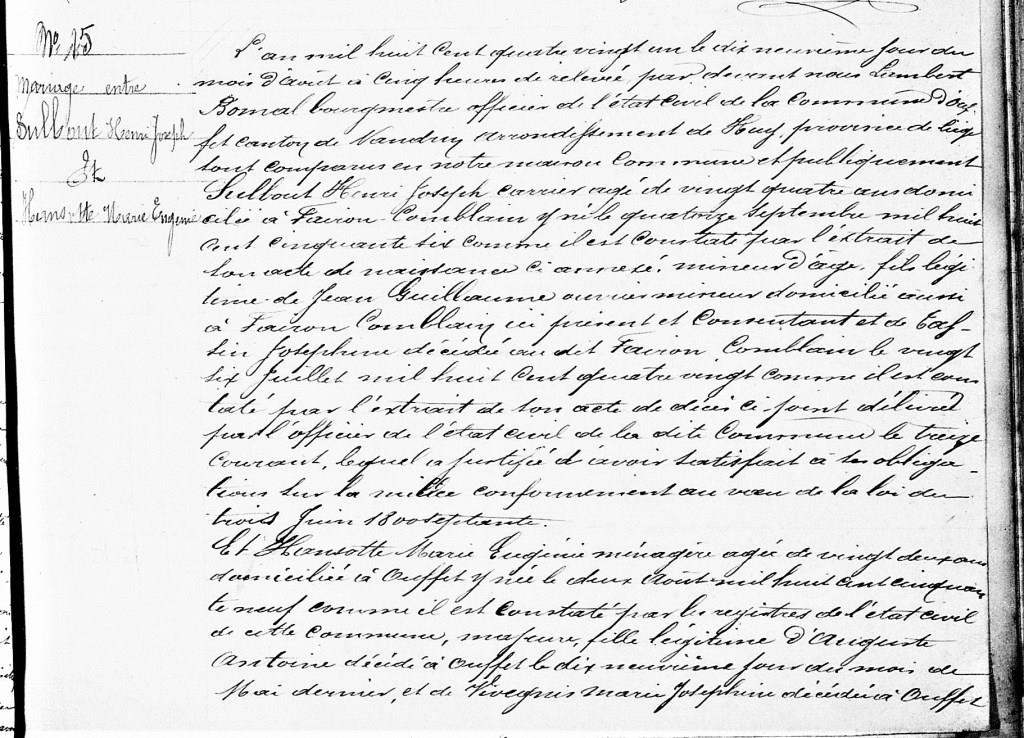 N° 15
Mariage entre
Sulbout Henri Joseph
Et
Hansotte Marie Eugénie
L'an mil huit Cent quatre vingt un le dix neuvième jour du
mois d'août à Cinq heures de relevée, par devant nous Lambert
Bomal bourgmestre officier de l'état civil de la Commune d'Ouf-
fet canton de Nandrin arrondissement de Huy, province de Liége
sont comparus en notre maison Commune et publiquement
Sulbout Henri Joseph carrier agé de vingt quatre ans domi
cilié à Fairon-Comblain y né le quatorze Septembre mil huit
cent cinquante six comme il est Constaté par l'éxtrait de
son acte de naissance ci annexé, mineur d'âge, fils légi
time de Jean Guillaume ouvrier mineur domicilié aussi
à Fairon Comblain ici présent et Consentant et de Taf-
sin Joséphine décédée au dit Fairon Comblain le vingt
six Juillet mil huit Cent quatre vingt comme il est cons
taté par l'éxtrait de son acte de décès ci-joint délivré
par l'officier de l'état civil de la dite Commune le treize
Courant, lequel a justifié d'avoir satisfait à ses obliga-
tions sur la milice conformement au vœu de la loi du
trois Juin 1800 septante.
Et Hansotte Marie Eugénie ménagère agée de vingt deux ans
domiciliée à Ouffet y née le deux Août mil huit cent cinquan
te neuf comme il est Constaté par les registres de l'état civil
de cette Commune, majeure, fille légitime d'Auguste
Antoine décédé à Ouffet le dix neuvième jour du mois de
Mai dernier, et de Vivegnis Marie Josephine décédée à Ouffet